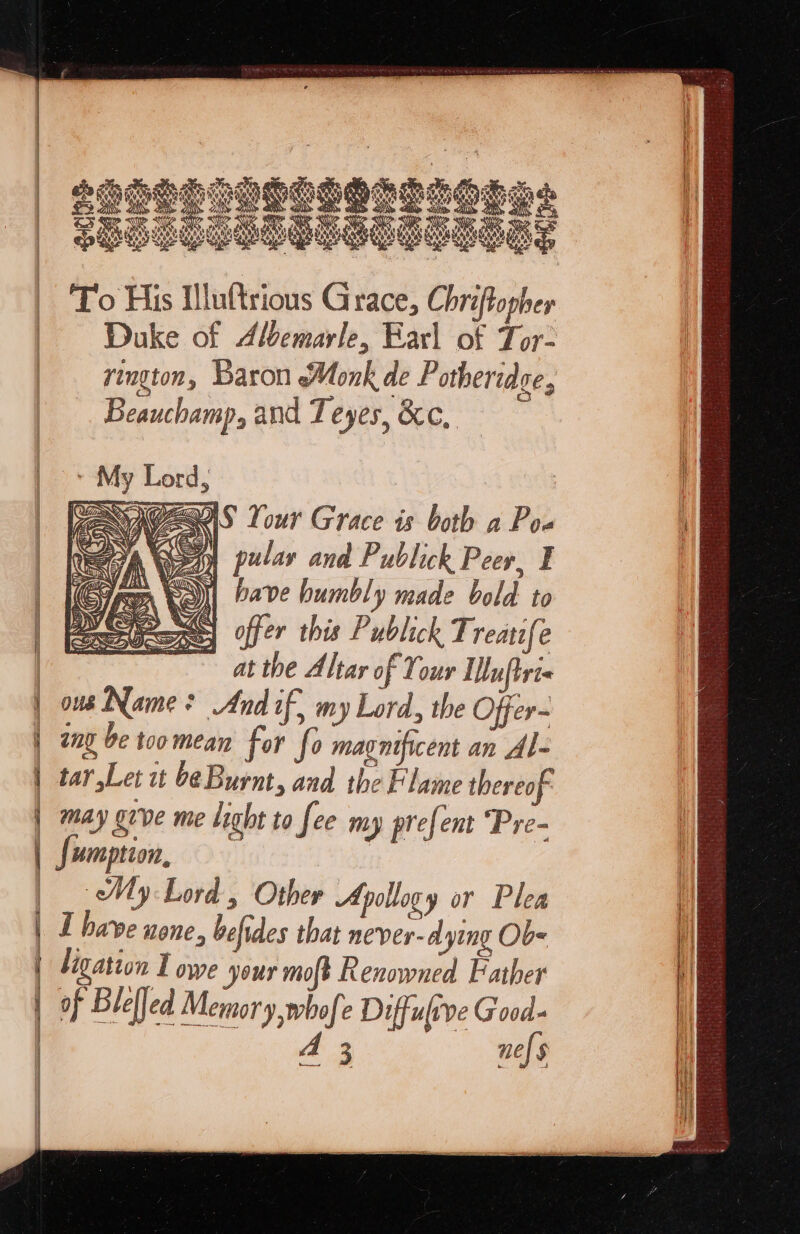 To His Illuſtrious Grace, Chriſtopher
Duke of Albemarle, Earl of Tor-
rington, Baron Monk de Potheridge,
Beauchamp, and Teyes, &c.
My Lord,
AS Your Grace is both a Po-
pular and Publick Peer, I
have humbly made bold to
offer this Publick Treatiſe
at the Altar of Your Illuſtri-
ous Name: And if, my Lord, the Offer-
ing be too mean for ſo magnificent an Al-
tar, Let it be Burnt, and the Flame thereof
may give me light to ſee my preſent Pre-
ſumption.
My Lord, Other Apollogy or Plea
I have none, beſides that never-dying Ob-
ligation I owe your moſt Renowned Father
of Bleſſed Memory, whoſe Diffuſive Good-
A 3 neſs